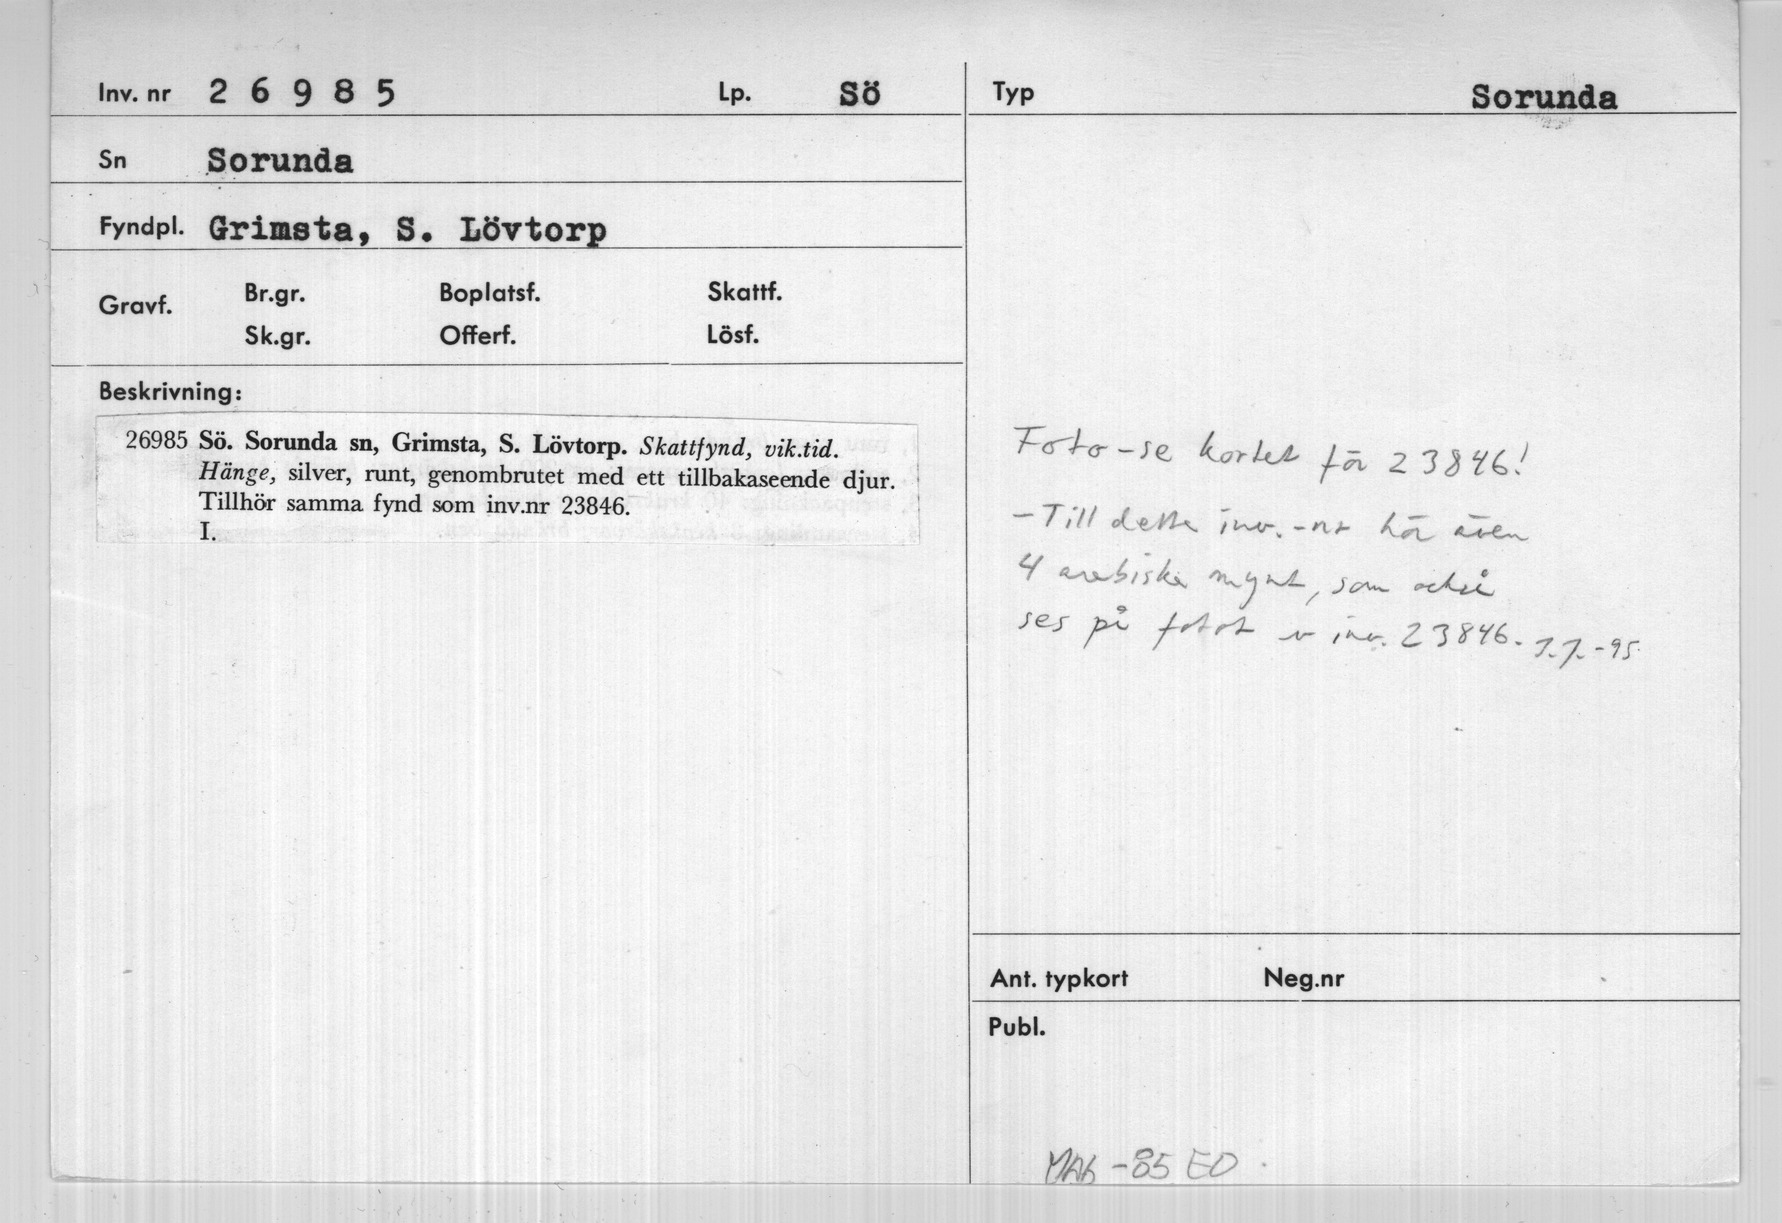 Inv. nr 2 6 9 8 5 Lp. Sö
Sn Sorunda
Fyndpl. Grimsta, S. Lövtorp
Gravf. Br.gr. Boplatsf. Skattf.
Sk.gr. Offerf. Lösf.
Beskrivning:
26985 Sö. Sorunda sn, Grimsta, S. Lövtorp. Skattfynd, vik.tid.
Hänge, silver, runt, genombrutet med ett tillbakaseende djur.
Tillhör samma fynd som inv.nr 23846.
I.
Typ Sorunda
Foto-se kortet för 23846!
-Till detta inv.-nr hör även
4 arabiska mynt, som också
ses på fotot v inv. 23846. J.J.-95
Ant. typkort Neg.nr
Publ.
-85 EO